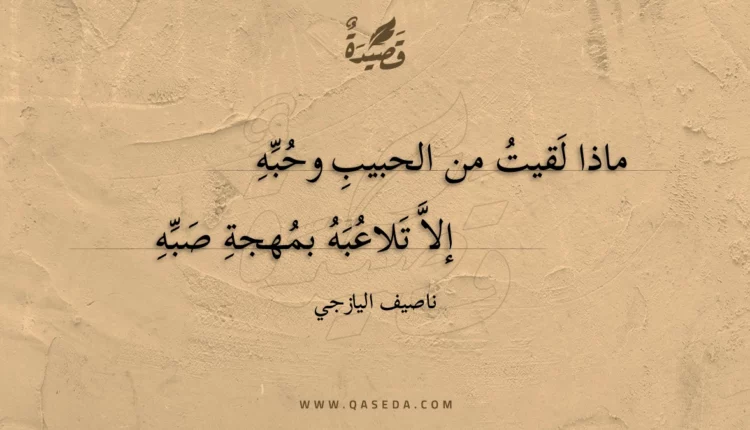 قَصِيدَةٌ
ماذا لَقيتُ من الحبيبِ وحُبِّهِ
إلاَّ تَلاعُبَهُ بمُهجةِ صَبِّهِ
ناصيف اليازجي
WWW.QASEDA.COM